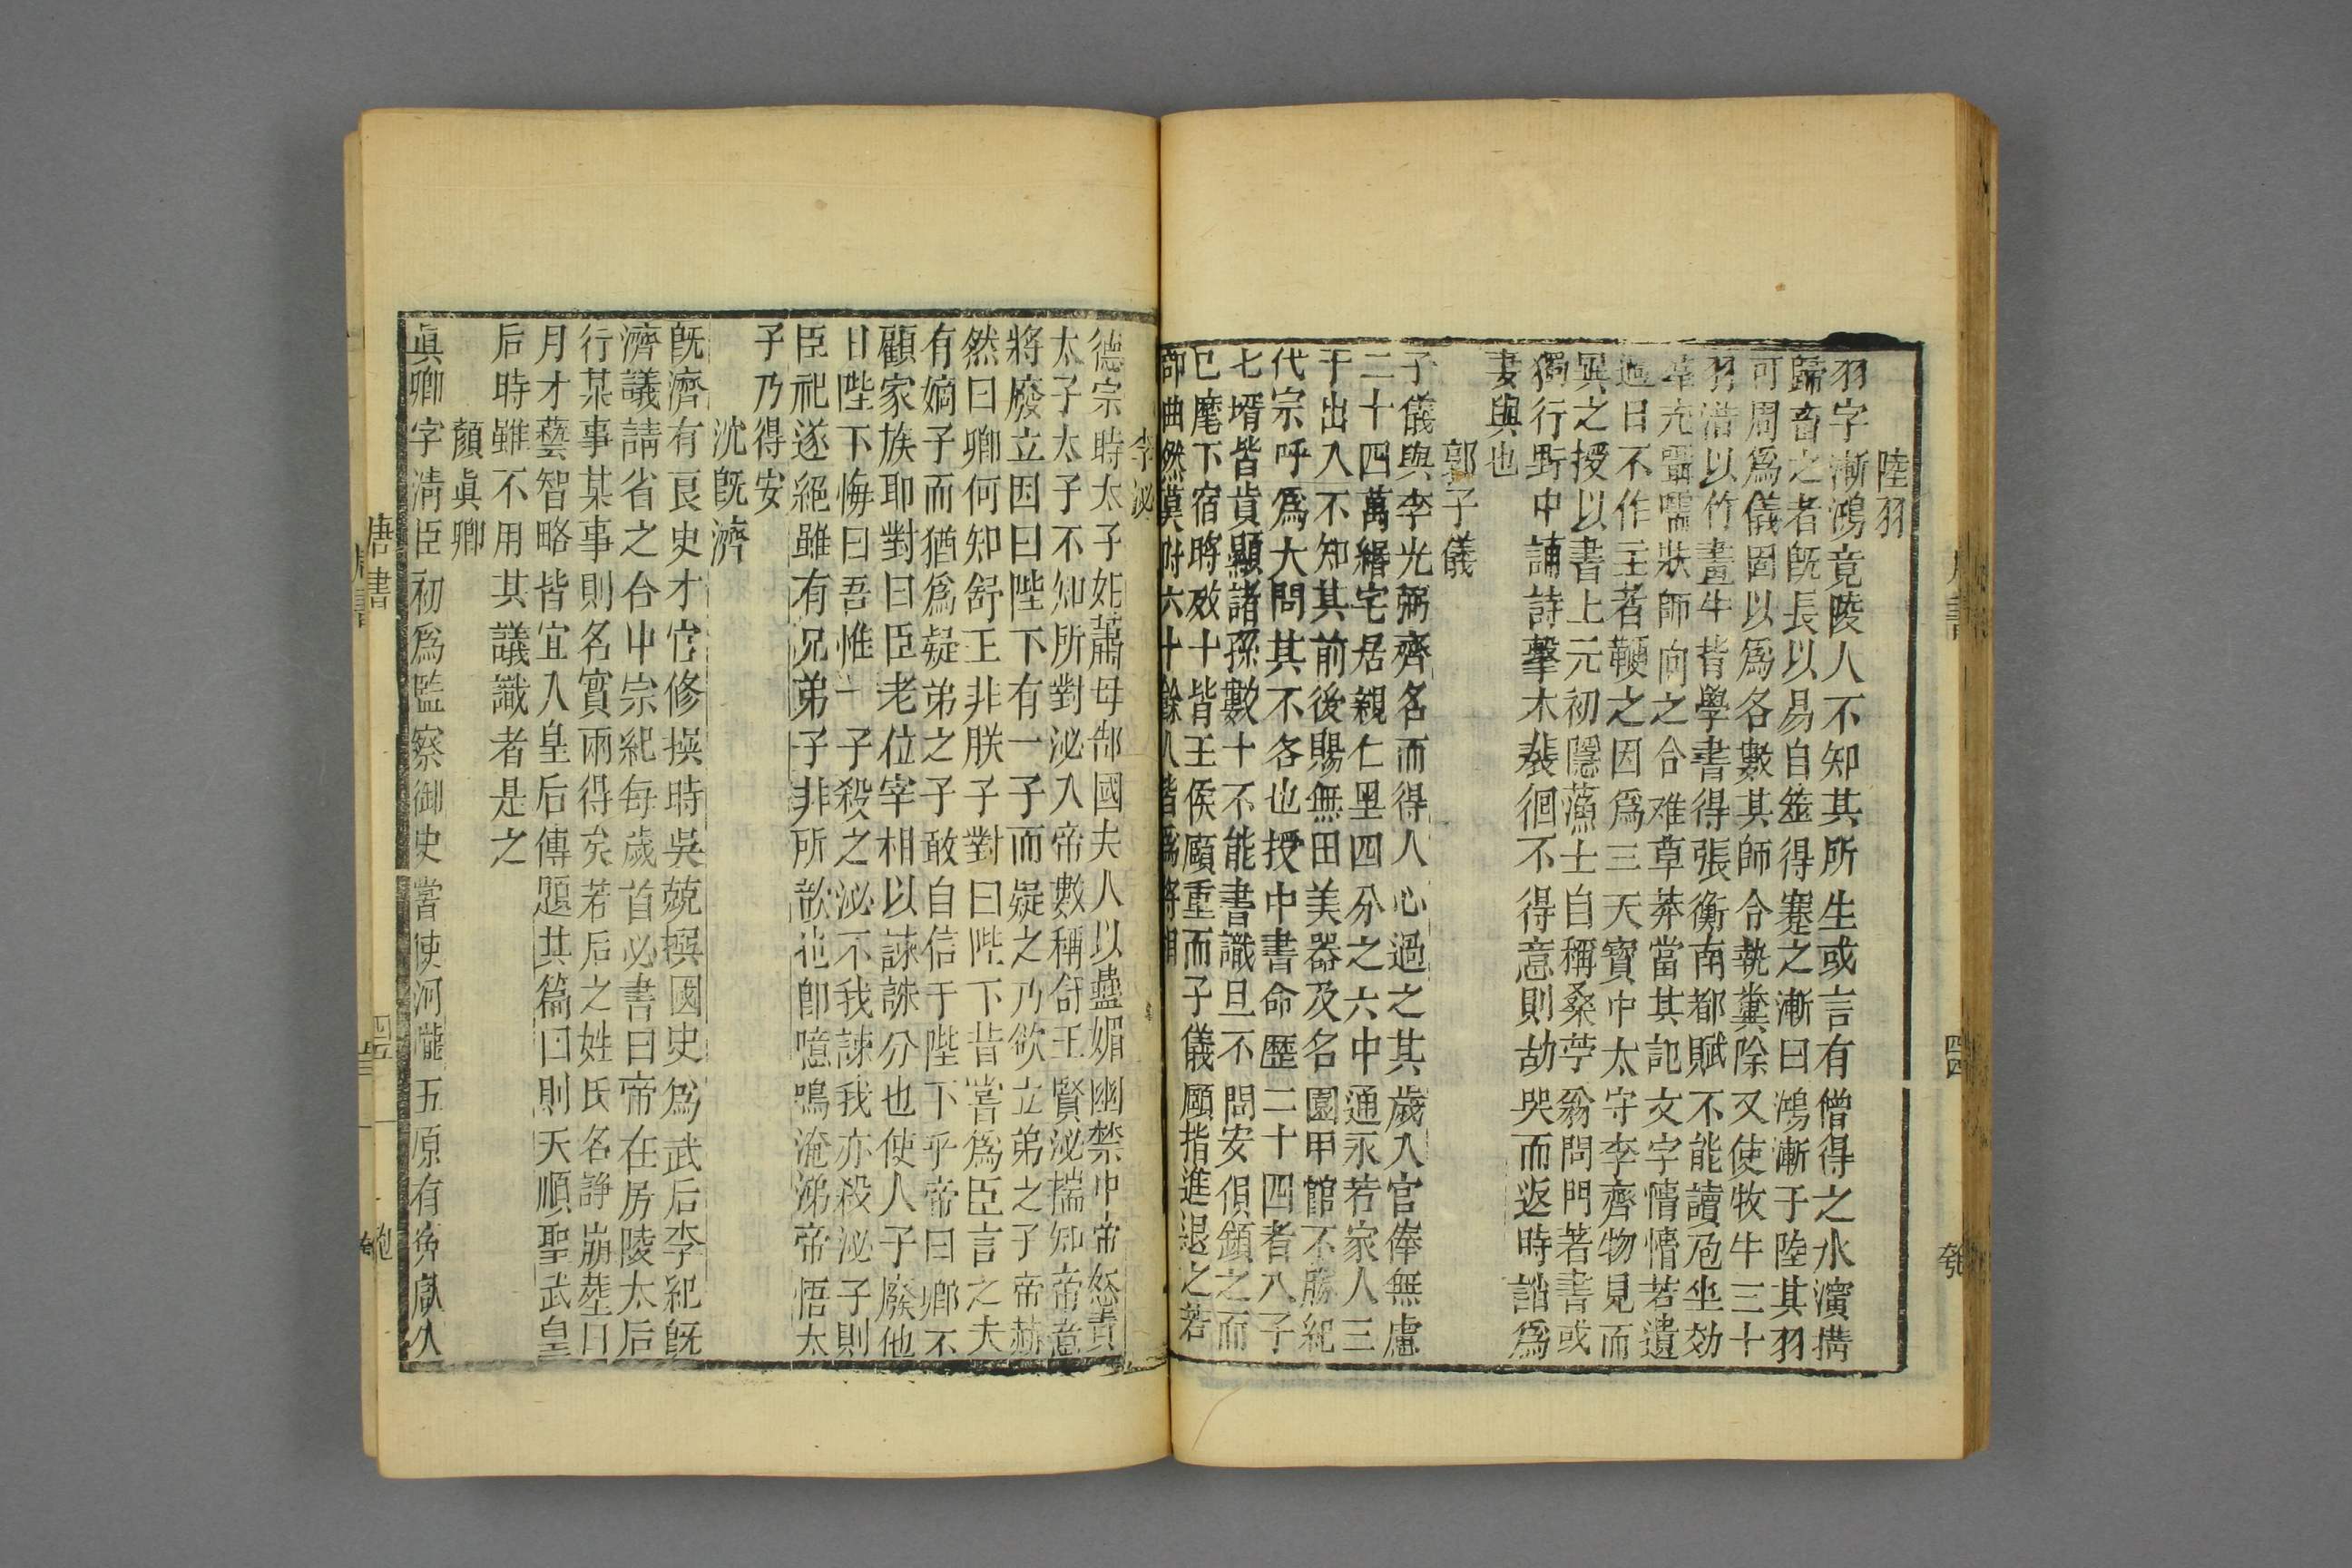 陸羽
羽字漸鴻竟陵人不知其所生或言有僧得之水濱携
歸畜之者旣長以易自筮得蹇之漸曰鴻漸于陸其羽
可周爲儀因以爲名數其師令執糞除又使牧牛三十
羽潛以竹畫牛背學書得張衡南都賦不能讀危坐効
羣兒囁嚅狀師向之合难草莽當其記文字懵懵若遺
過日不作主者鞭之因爲三天寶中太守李齊物見而
異之授以書上元初隱漁士自稱桑苧翁問門著書或
獨行野中誦詩擊木裴徊不得意則刼哭而返時詣爲
妻與也
郭子儀
子儀與李光弼齊名而得人心過之其歲入官俸無慮
二十四萬緡宅居親仁里四分之六中通永若家人三
千出入不知其前後賜無田美器及名園甲館不勝紀
代宗呼爲大問其不名也授中書命歷二十四者八子
七壻皆貴顯諸孫數十不能書識旦不問安俱頷之而
已麾下宿將數十皆王侯顧重而子儀顧指進退之若
部曲然莫府六十餘人皆爲將相
李泌
德宗時太子妃蕭母郜國夫人以蠱媚幽禁中帝怒責
太子太子不知所對泌入帝數稱舒王賢泌揣知帝意
將廢立因曰陛下有一子而疑之乃欲立弟之子帝赫
然曰卿何知舒王非朕子對曰陛下昔嘗爲臣言之夫
有嫡子而猶爲疑弟之子敢自信于陛下乎帝曰卿不
顧家族耶對曰臣老位宰相以諫誅分也使人子廢他
日陛下悔曰吾惟一子殺之泌不我諫我亦殺泌子則
臣祀遂絕雖有兄弟子非所歆也卽噫嗚淹涕帝悟太
子乃得安
沈旣濟
旣濟有良史才官修撰時吳兢撰國史爲武后李紀旣
濟議請省之合中宗紀每歲首必書曰帝在房陵太后
行某事某事則名實兩得矣若后之姓氏名諍崩塟日
月才藝智略皆宜入皇后傳題其篇曰則天順聖武皇
后時雖不用其議識者是之
顏眞卿
眞卿字淸臣初爲監察御史嘗使河隴五原有寃獄久
唐書
四五
匏